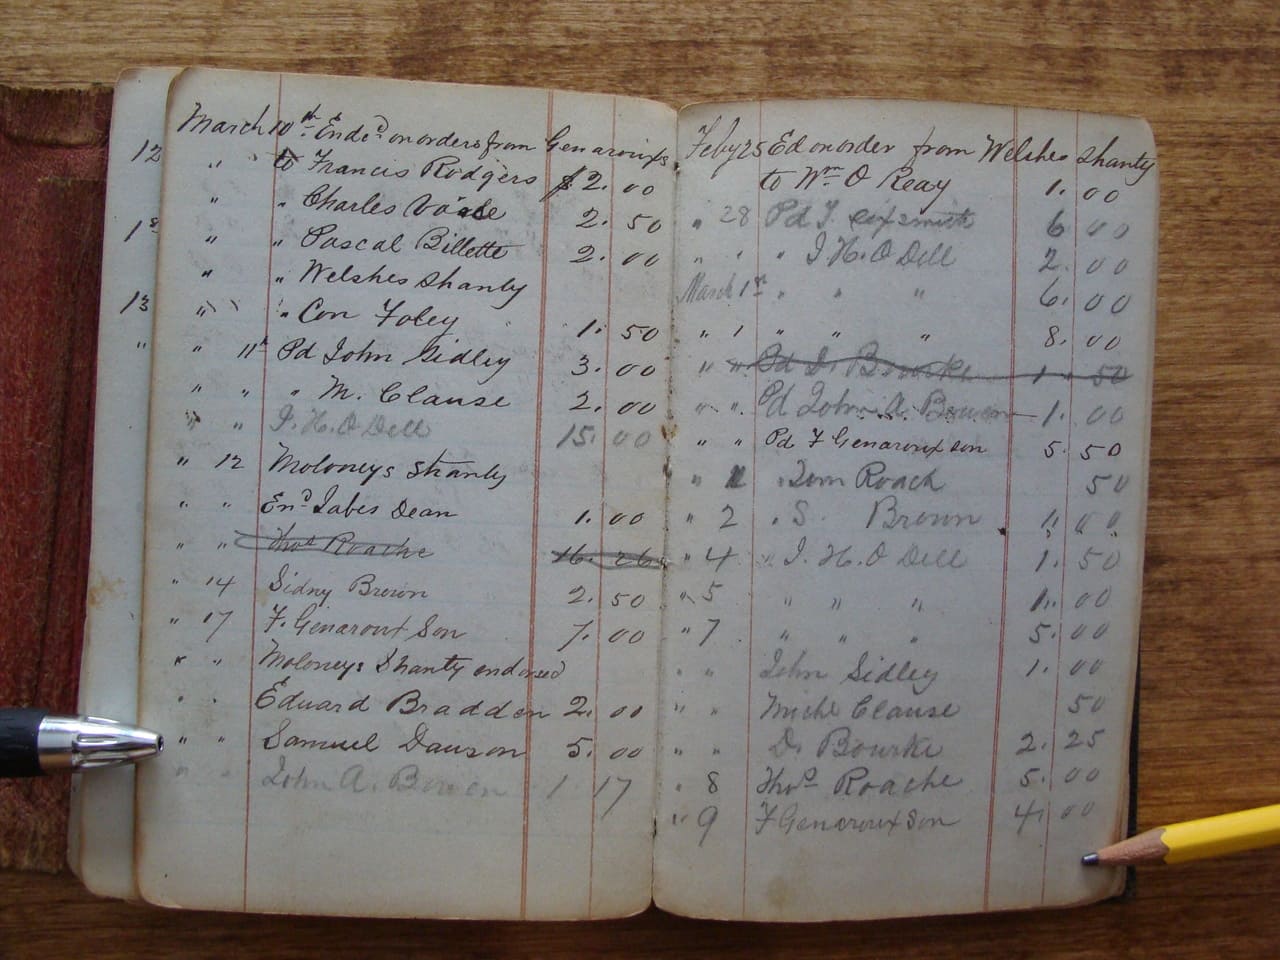 12
18
13
"
March 10th End'd on orders from Genarouxs
" to Francis Rodgers $2. 00
" " Charles 2. 50
" " Pascal Billette 2. 00
" " Welshes Shanty
" " Con Foley 1. 50
" 11th Pd John Sidley 3. 00
" " " M. Clause 2. 00
" " J. H. O Dell 15. 00
" 12 Moloneys Shanty
" " En'd Jabes Dean 1. 00
" " Thos Roache 16. 26
" 14 Sidny Brown 2. 50
" 17 F. Genaroux Son 7. 00
" " Moloneys Shanty endorsed
" " Edward Bradden 2. 00
" " Samuel Dawson 5. 00
" " John A. Bowen 1 17
Feby 25 Ed on order from Welshes Shanty
to Wm O Reay 1. 00
" 28 Pd J. 6 00
" " " J H. O Dell 2. 00
March 1st " " " 6. 00
" 1 " " " 8. 00
" " Pd D. Bourke 1 " 50
" " Pd John A. Bowen 1. 00
" " Pd F Genaroux son 5. 50
" " Tom Roach 50
" 2 " S. Brown 1. 00
" 4 " J. H. O Dell 1. 50
" 5 " " " 1. 00
" 7 " " " 5. 00
" " John Sidley 1. 00
" " Miche Clause 50
" " D. Bourke 2. 25
" 8 Thos Roache 5. 00
" 9 F Genaroux Son 4. 00